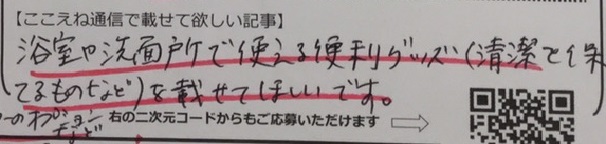 【ここえね通信で載せて欲しい記事】
浴室や洗面所で使える便利グッズ(清潔を保
てるものなど)を載せてほしいです。
オプション
など
右の二次元コードからもご応募いただけます